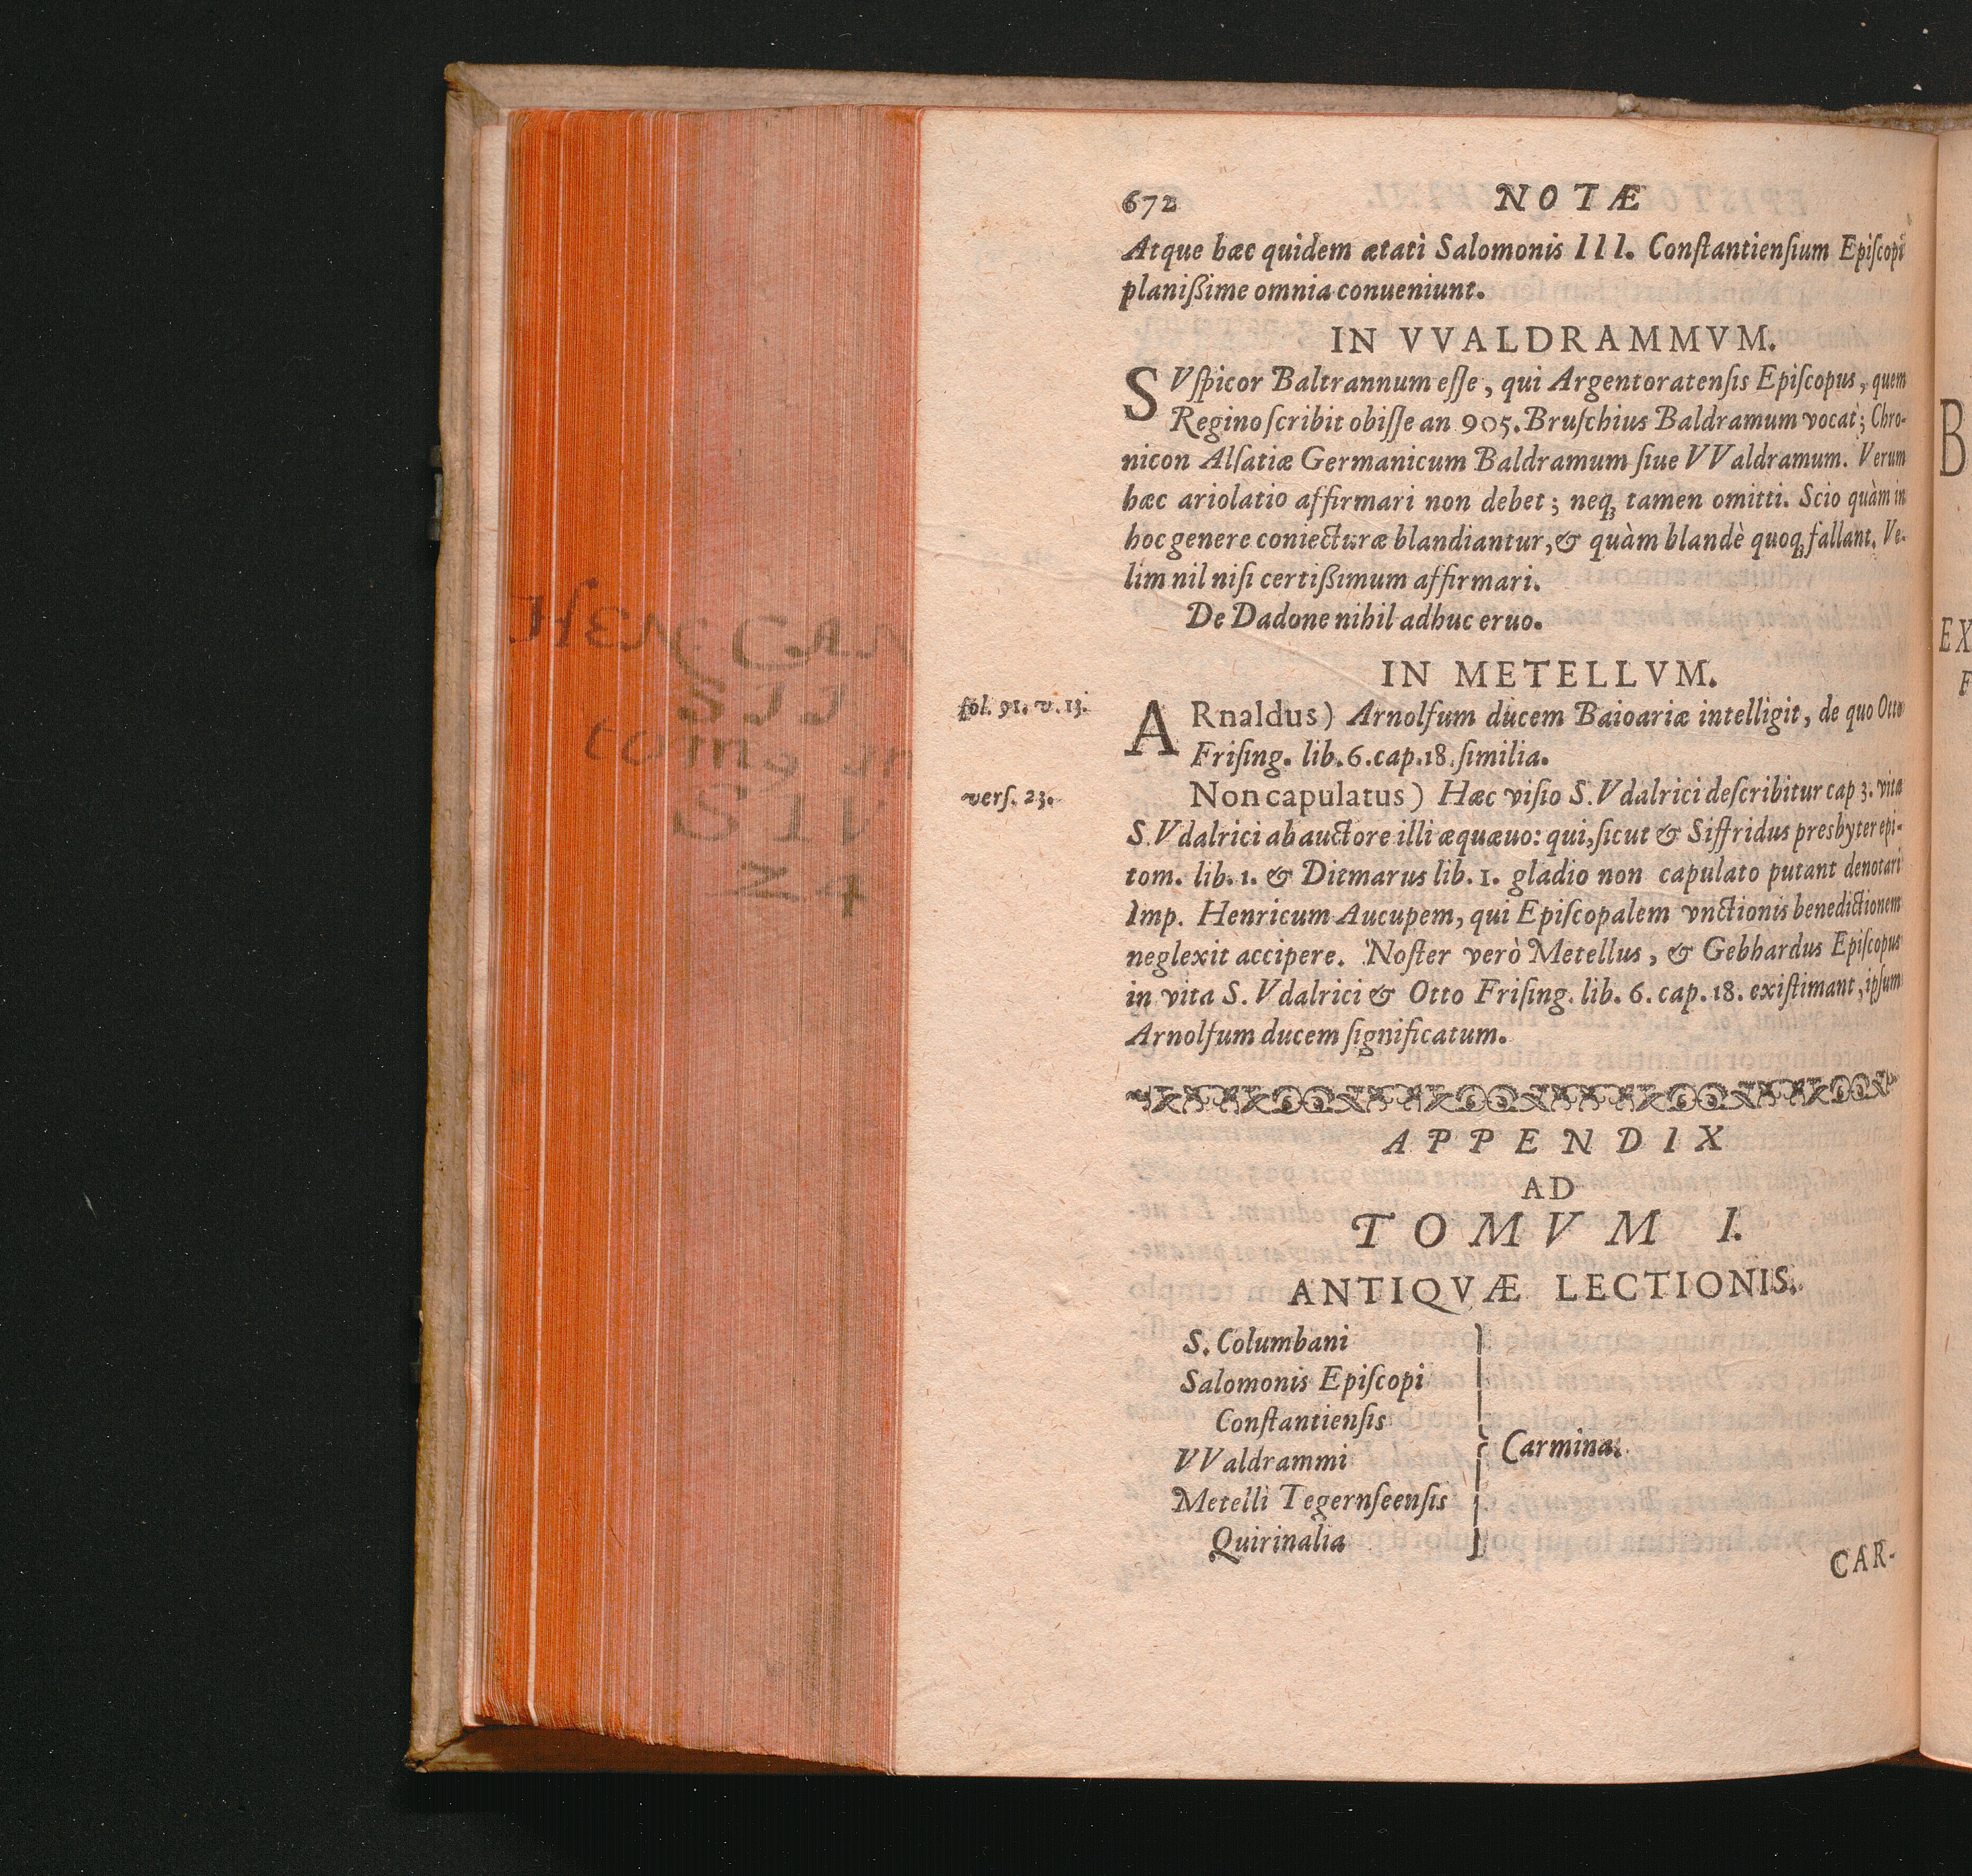 672 NOTÆ
Atque hæc quidem ætati Salomonis III. Conſtantienſium Epiſcopi
planißime omnia conueniunt.
IN VVALDRAMMVM.
SVſpicor Baltrannum eſſe, qui Argentoratenſis Epiſcopus, quem
Regino ſcribit obiſſe an 905. Bruſchius Baldramum vocat; Chro-
nicon Alſatiæ Germanicum Baldramum ſiue VValdramum. Verum
hæc ariolatio affirmari non debet; neq́ꝫ tamen omitti. Scio quàm in
hoc genere coniecturæ blandiantur, & quàm blandè quoq́ꝫ fallant. Ve-
lim nil niſi certißimum affirmari.
De Dadone nihil adhuc eruo.
IN METELLVM.
fol. 91. v. 13.
ARnaldus) Arnolfum ducem Baioariæ intelligit, de quo Otto
Friſing. lib. 6. cap. 18. ſimilia.
verſ. 23.
Non capulatus) Hæc viſio S. Vdalrici deſcribitur cap 3. vitæ
S. Vdalrici ab auctore illi æquæuo: qui, ſicut & Siffridus presbyter epi-
tom. lib. 1. & Ditmarus lib. 1. gladio non capulato putant denotari
Imp. Henricum Aucupem, qui Epiſcopalem vnctionis benedictionem
neglexit accipere. Noſter verò Metellus, & Gebhardus Epiſcopus
in vita S. Vdalrici & Otto Friſing. lib. 6. cap. 18. exiſtimant, ipſum
Arnolfum ducem ſignificatum.
APPENDIX
AD
TOMVM I.
ANTIQVÆ LECTIONIS.
S. Columbani
Salomonis Epiſcopi
Conſtantienſis
VValdrammi
Metelli Tegernſeenſis
Quirinalia
Carmina.
CAR-
B
EX
F